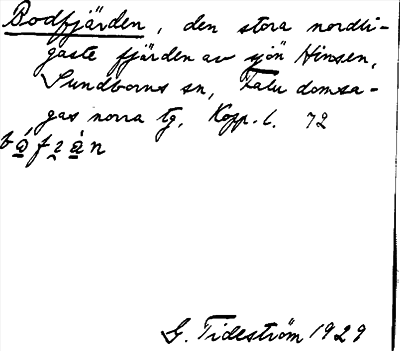 Bodfjärden, den stora nordli-
gaste fjärden av sjön Hinsen,
Sundborns sn, Falu domsa-
gas norra tg, Kopp. l. 72
G. Tideström 1929